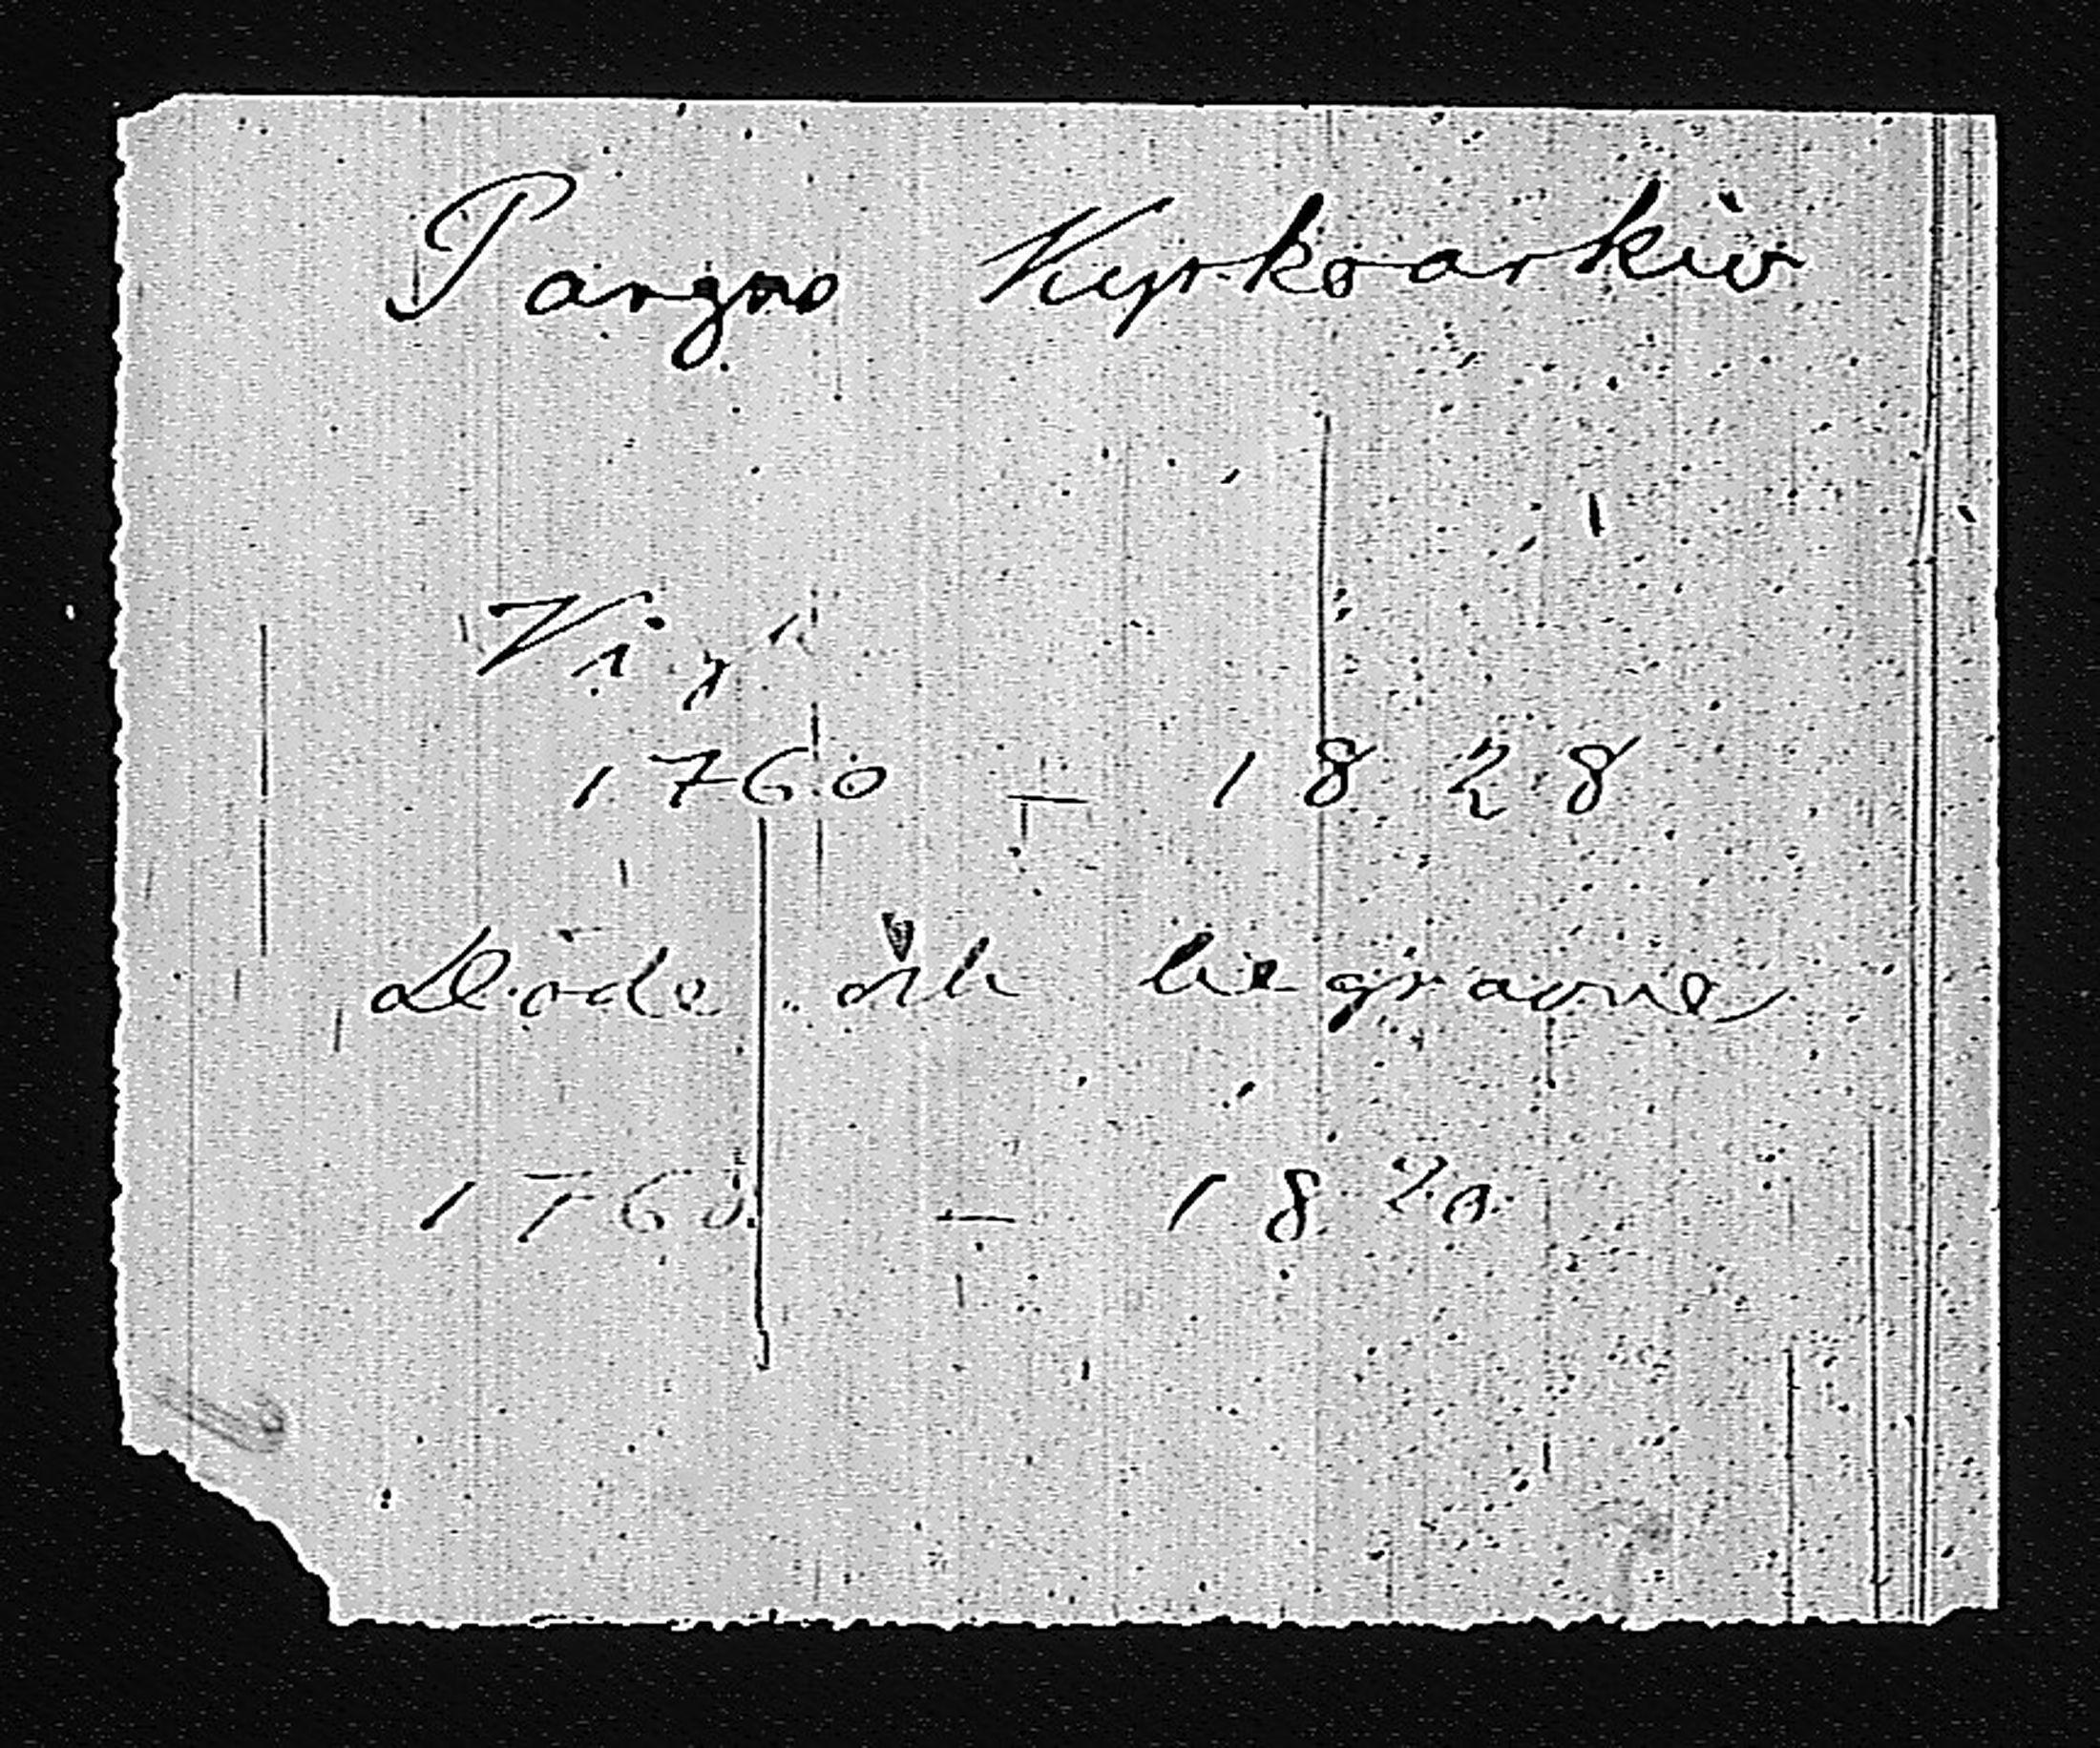 Pargas Kyrkoarkiv
Vigd
1760 – 1828
Döde och begravne
1760 – 1820